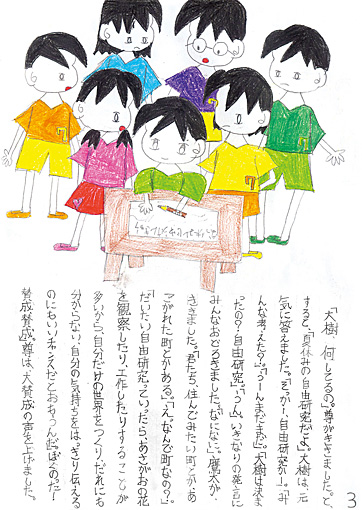 「大樹、何してるの。」尊がききました。と、
すると、「夏休みの自由研究だよ。」大樹は、元
気に答えました。「そっかー、自由研究かー。」「み
んな考えた?」「うーんまだまだ。」大樹は決ま
ったの?自由研究。」「うん、いきなりの発言に
みんなおどろきました。「なになに。」鷹太が、
ききました。「君たち、住んでみたい町とかあ
こがれた町とかある。」「えなんで町なの?。」
だいたい自由研究っていったら、あさがおの花
を観察したり、工作したりすることが
多いから、自分だけの世界をつくり、だれにも
分からない、自分の気持ちをはっきり伝える
のにもいいチャンスだとおもったんだ。ぼくのった!
賛成賛成。」尊は、大賛成の声を上げました。
3